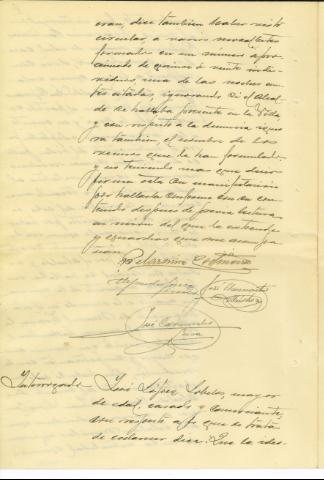 eran, dice tambien haber visto
circular, a varios mozalbetes
formados en un número apro-
ximado de quince o veinte indi-
viduos, una de las noches an-
tes citadas, ignorando si el Alcal-
de se hallaba presente en la Villa
y con respecto a la denuncia igno-
ra tambien el nombre de los
mismos que la han formulado
y no teniendo mas que decir
firma esta su manifestación
por hallarla conforme en su con-
tenido despues de previa lectura
en unión del que la extiende
y guardias que me acompa-
ñan
José
José
Interrogado José López mayor
de edad, casado y comerciante,
con respecto a lo que se trata
de esclarecer dice: Que la